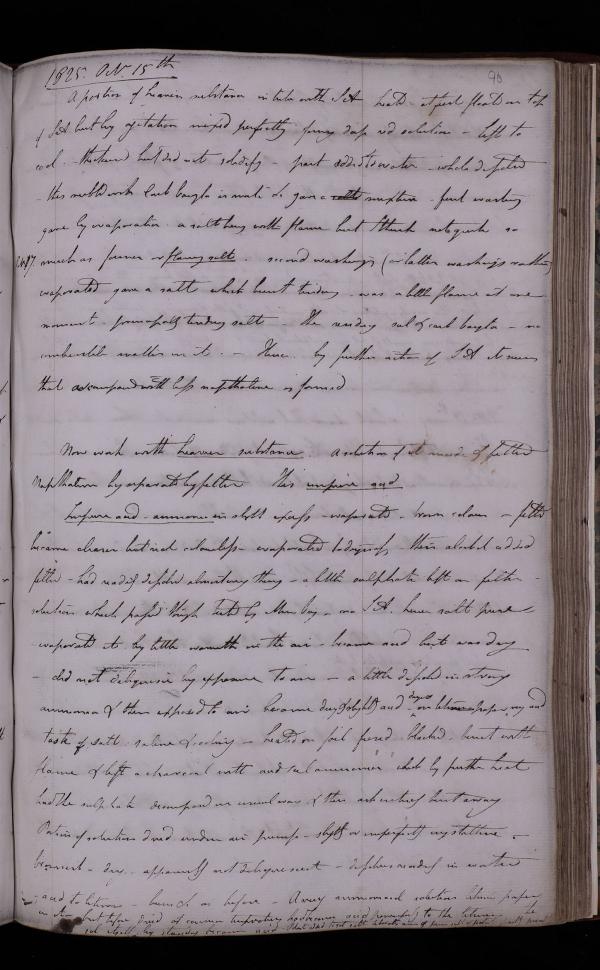 1825. Oct. 15th
90
A portion of heavier substance in tube with SA heated at first floated on top
of SA but by agitation mixed perfectly forming deep red solution - left to
cool - thickened but did not solidify - part added to water - whole dissolved
- this rubbed with Carb baryta in mortar &c gave a mixture - first washing
gave by evaporation a salt burning with flame but I think not quite so
much as former or flaming salt. second washings (or latter washings rather)
evaporated gave a salt which burnt tindery was a little flame at one
moment - principally tindery salts - The residue sul & carb baryta - no
combustible matter in it. - Hence by further action of SA it seems
that a compound with less naphthaline is formed
Now work with heavier substance. A solution of it made & filtered
Naphthaline by separated by filter This impure acid
Impure acid - ammonia in slight excess - evaporated - brown colour - filtered
became clearer but not colourless - evaporated to dryness - then alcohol added
filtered - had readily dissolved almost every thing - a little sulphate left on filter -
solution which passed through tested by Mur bary - no SA. hence salt pure
evaporated it by little warmth in the air - became acid but was dry
- did not deliquesce by exposure to air - a little dissolved in strong
ammonia & then exposed to air became dry (slightly) acid on litmus paper
taste of salt saline & cooling - heated on foil fused, blacked, burnt with
flame & left a charcoal with acid sul ammonia which by further heat
had the sulphate decomposed in usual way & then ash entirely burnt away
Portion of solution dried under air pump - slightly or imperfectly crystalline -
- dry - apparently not deliquescent - dissolves readily in water
- acid to litmus - burnt &c as before - A very ammoniacal solution litmus paper
in it but before dried at common temperature had become acid powerfully to the litmus